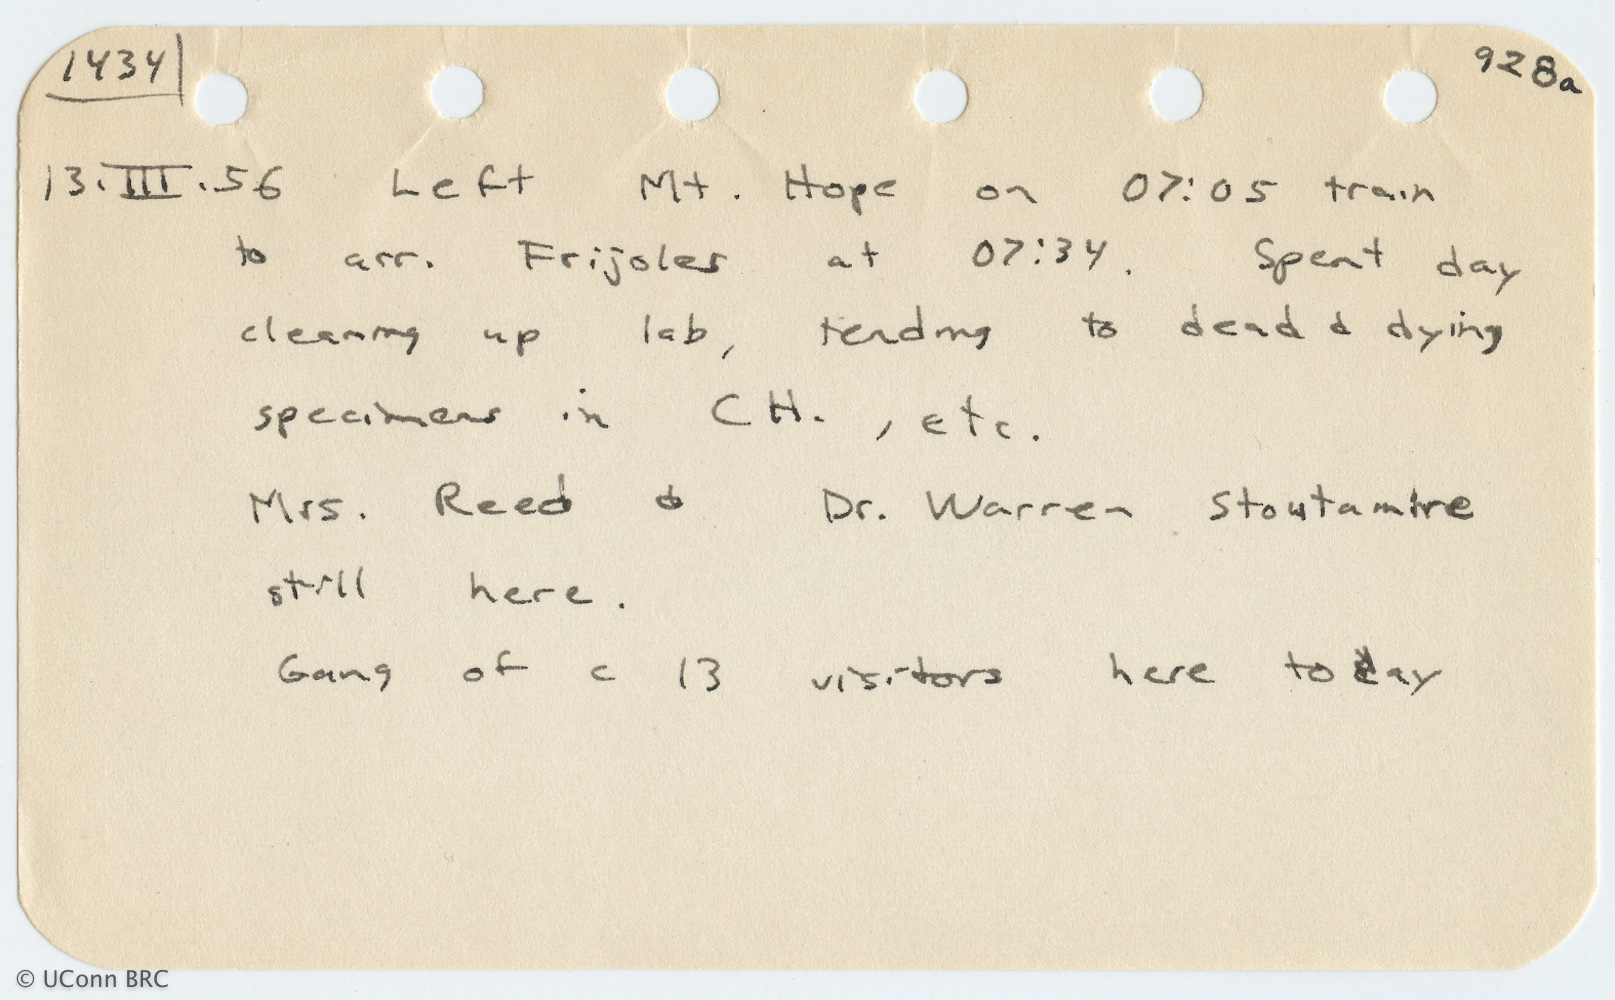 1434
928a
13.III.56 Left Mt. Hope on 07:05 train
to arr. Frijoles at 07:34. Spent day
cleaning up lab, tending to dead & dying
specimens in CH., etc.
Mrs. Reed & Dr. Warren Stoutamire
still here.
Gang of c 13 visitors here today
© UConn BRC